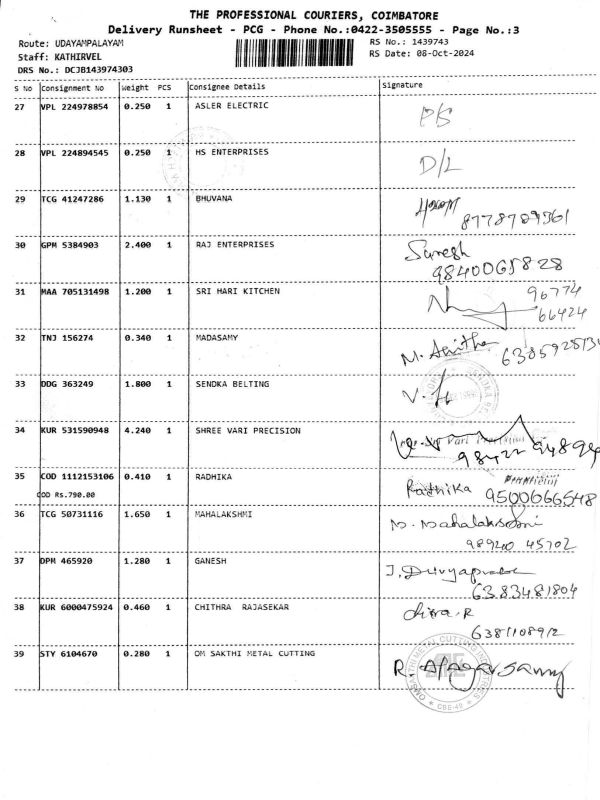 THE PROFESSIONAL COURIERS, COIMBATORE
Delivery Runsheet - PCG - Phone No.:0422-3505555 - Page No.:3
Route: UDAYAMPALAYAM
RS No.: 1439743
Staff: KATHIRVEL
RS Date: 08-Oct-2024
DRS No.: DCJB143974303
S No Consignment No Weight PCS Consignee Details Signature
27 VPL 224978854 0.250 1 ASLER ELECTRIC
28 VPL 224894545 0.250 1 HS ENTERPRISES D/L
29 TCG 41247286 1.130 1 BHUVANA
8778789361
30 GPM 5384903 2.400 1 RAJ ENTERPRISES Suresh
9840065828
31 MAA 705131498 1.200 1 SRI HARI KITCHEN 96774
66424
32 TNJ 156274 0.340 1 MADASAMY M. Anitha
33 DDG 363249 1.800 1 SENDKA BELTING
34 KUR 531590948 4.240 1 SHREE VARI PRECISION
98422 94894
35 COD 1112153106 0.410 1 RADHIKA Radhika 9500666548
COD Rs.790.00
36 TCG 50731116 1.650 1 MAHALAKSHMI
98940 45702
37 DPM 465920 1.280 1 GANESH
6383481804
38 KUR 6000475924 0.460 1 CHITHRA RAJASEKAR
6381108912
39 STY 6104670 0.280 1 OM SAKTHI METAL CUTTING